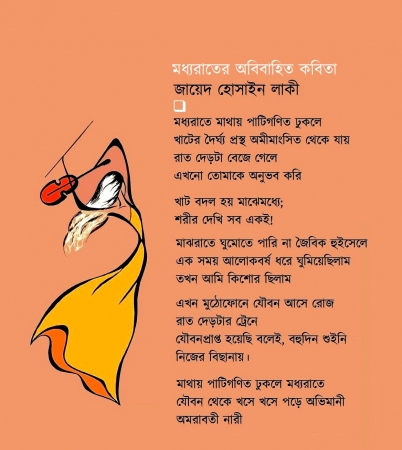 মধ্যরাতের অবিবাহিত কবিতা
জায়েদ হোসাইন লাকী
মধ্যরাতে মাথায় পাটিগণিত ঢুকলে
খাটের দৈর্ঘ্য প্রস্থ অমীমাংসিত থেকে যায়
রাত দেড়টা বেজে গেলে
এখনো তোমাকে অনুভব করি
খাট বদল হয় মাঝেমধ্যে;
শরীর দেখি সব একই!
মাঝরাতে ঘুমোতে পারি না জৈবিক হুইসেলে
এক সময় আলোকবর্ষ ধরে ঘুমিয়েছিলাম
তখন আমি কিশোর ছিলাম
এখন মুঠোফোনে যৌবন আসে রোজ
রাত দেড়টার ট্রেনে
যৌবনপ্রাপ্ত হয়েছি বলেই, বহুদিন শুইনি
নিজের বিছানায়।
মাথায় পাটিগণিত ঢুকলে মধ্যরাতে
যৌবন থেকে খসে খসে পড়ে অভিমানী
অমরাবতী নারী